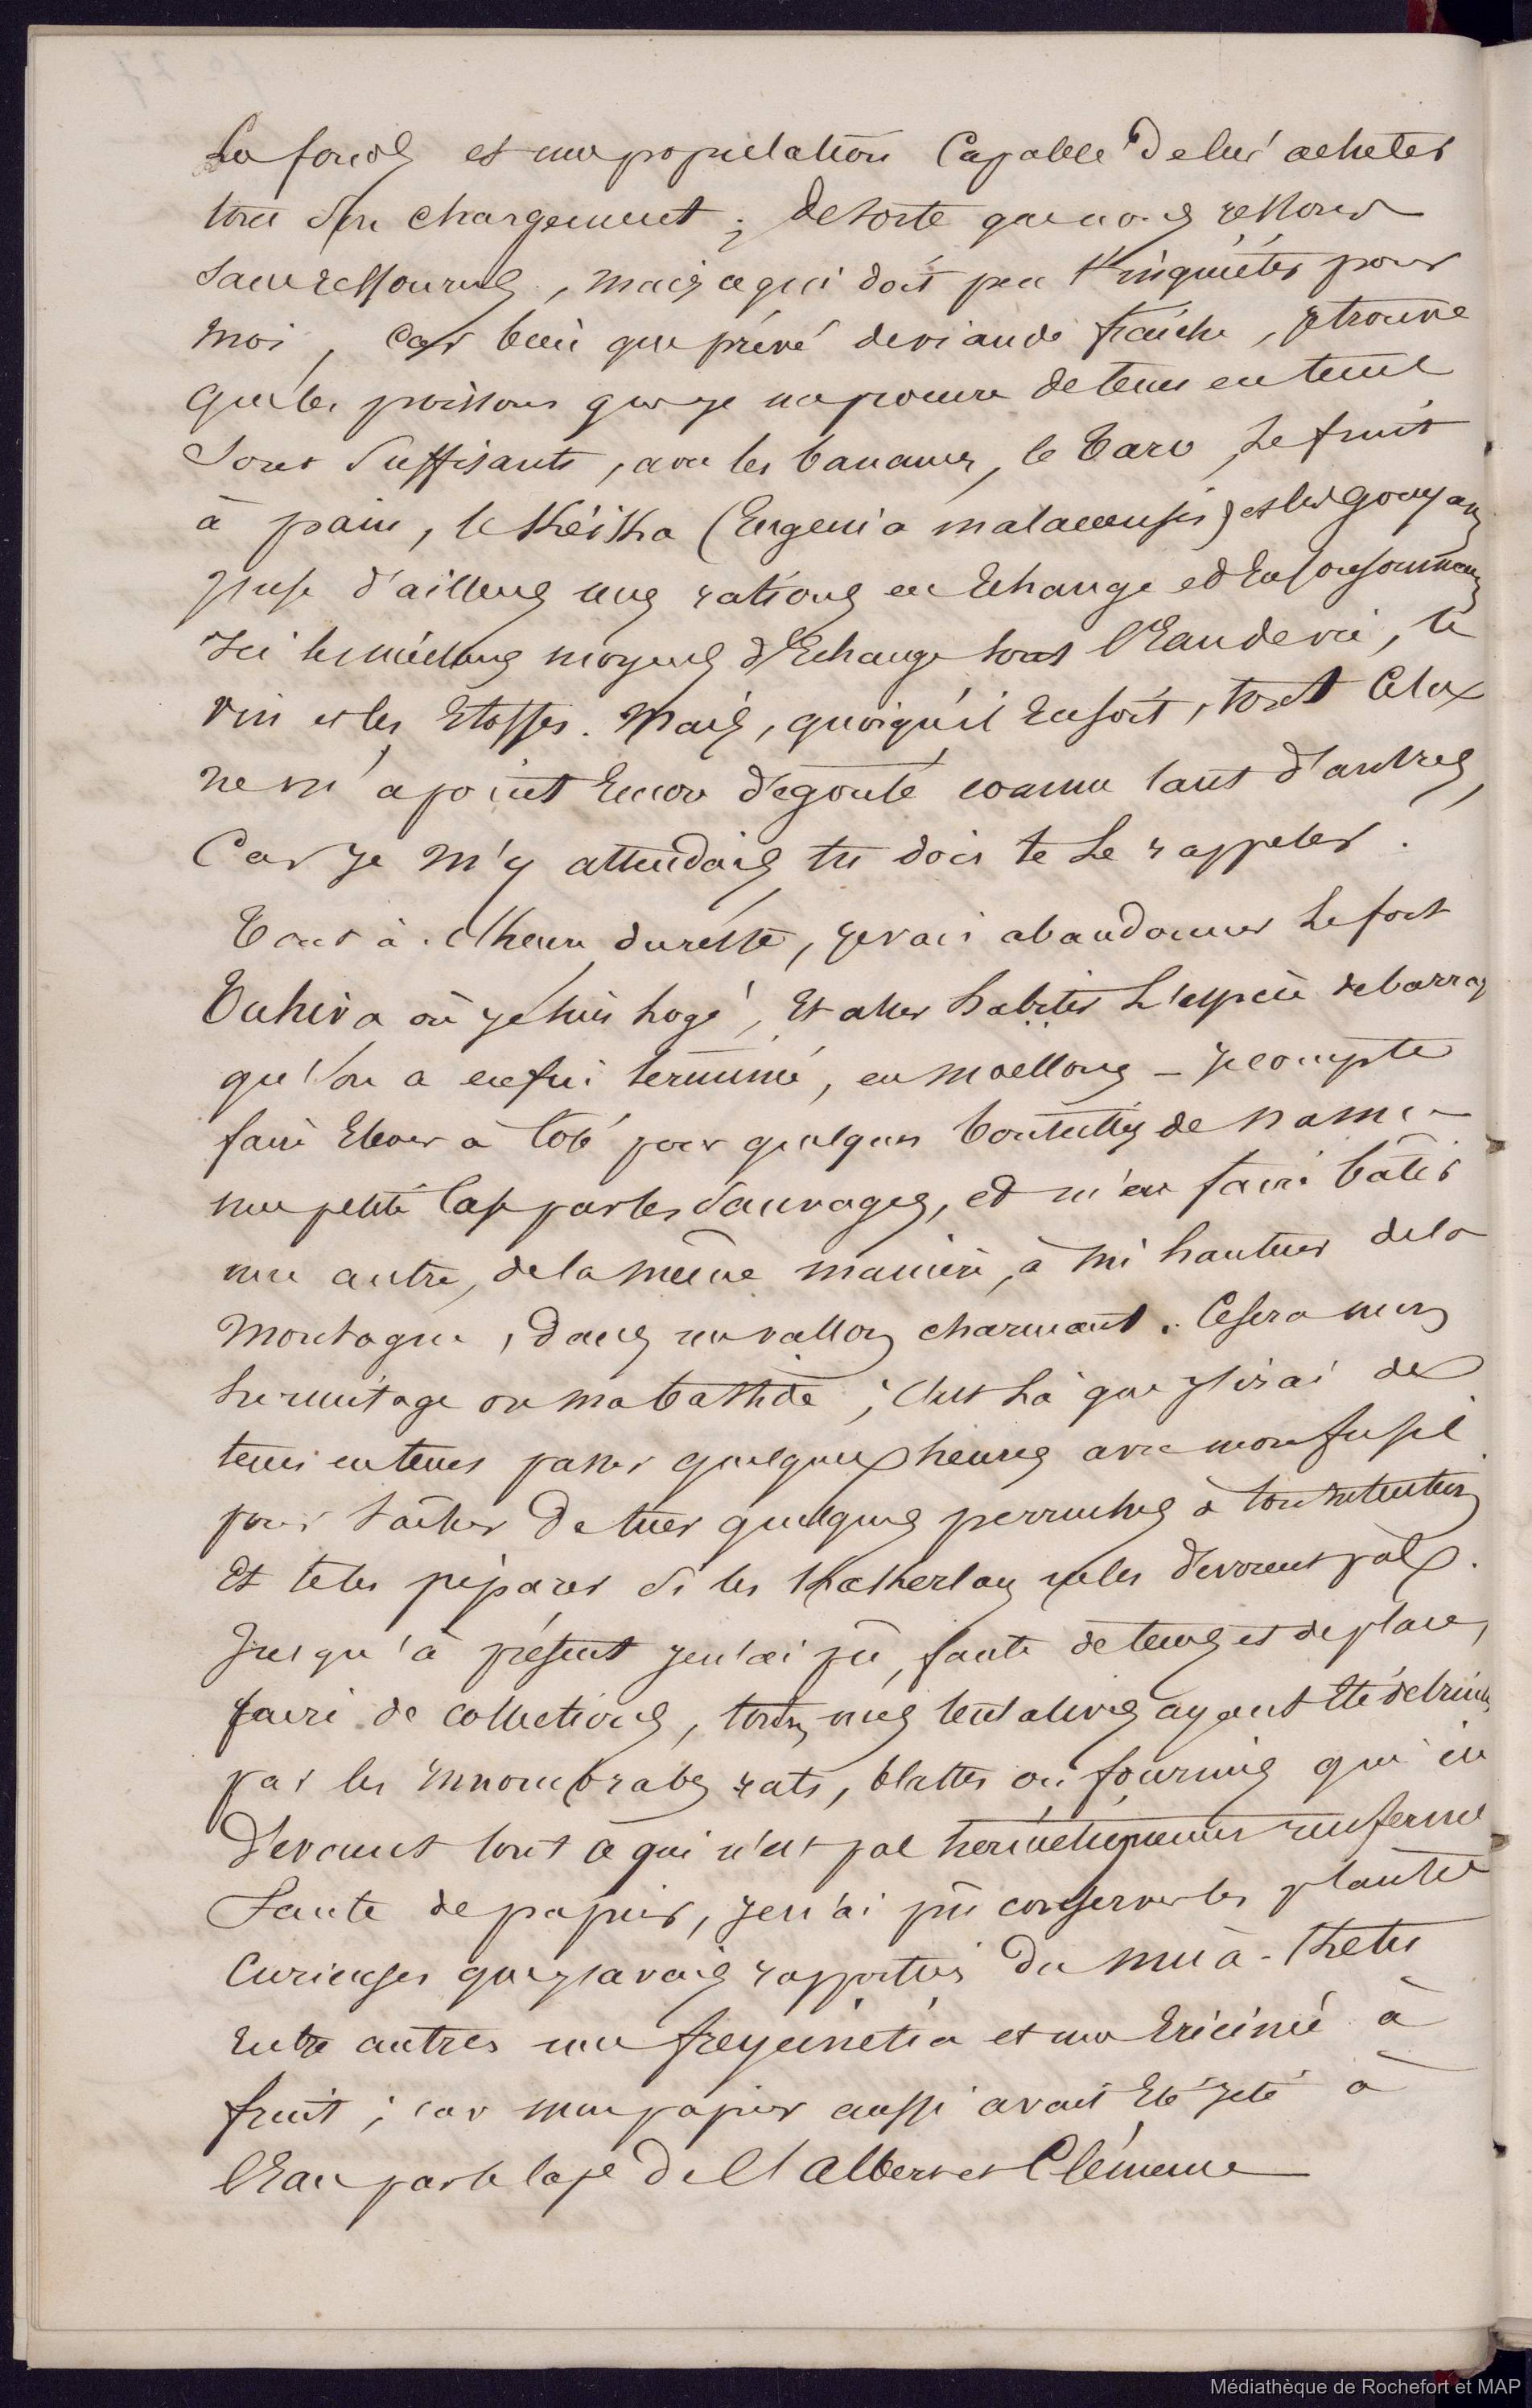 La fonds et une population Capable de lui acheter
tout son chargement ; de sorte que nous restons
sans ressources, mais ce qui doit peu t'inquiéter pour
moi, car bien que privé de viande fraîche, je trouve
que les poissons que je me procure de tems en tems
sont suffisants, avec les bananes, le taro, le fruit
à pain, le Kéïka (Eugenia malaccensis) et les goyaves
d'ailleurs mes rations en Echange et
Ici les meilleurs moyens d'Echange sont l'Eau de vie, le
vin et les Etoffes. Mais, quoiqu'il En soit, tout Cela
ne m'a point Encor dégouté comme tant d'autres,
Car je m'y attendais tu dois te Le rappeler.
Tout à l'heure du reste, je vais abandonner Le fort
Tuhiva où je suis Logé, Et aller habiter L'espèce de baraq
qu'on a enfin terminé, en moellons - je compte
faire Elever à côté pour quelques bouteilles de nama -
une petite Case par les Sauvages, et m'en faire bâtir
une autre, de la même manière, à mi hauteur de la
Montagne, dans un vallon charmant. Ce sera mon
hermitage ou ma bastide ; C'est Là que j'irai de
tems en tems passer quelques heures avec mon fusil
pour tâcher de tuer quelques perruches à ton intention
Et te les préparer si les Kakerlacs ne les dévorent pas.
Jusqu'à présent je n'ai pû, faute de tems et de place,
faire de collections, toutes mes tentatives ayant Eté détruites
par les innombrables rats, blattes ou fourmis qui ici
dévorent tout ce qui n'est pas hermétiquement renfermé
Faute de papier, je n'ai pû conserver les plantes
Curieuses que j'avais rapportées du muà-Ketu
Entre autres une freycinetia et une Ericinée à
fruit ; car mon papier aussi avait Eté jeté à
l'Eau par le Cape de l'Albert et Clémence